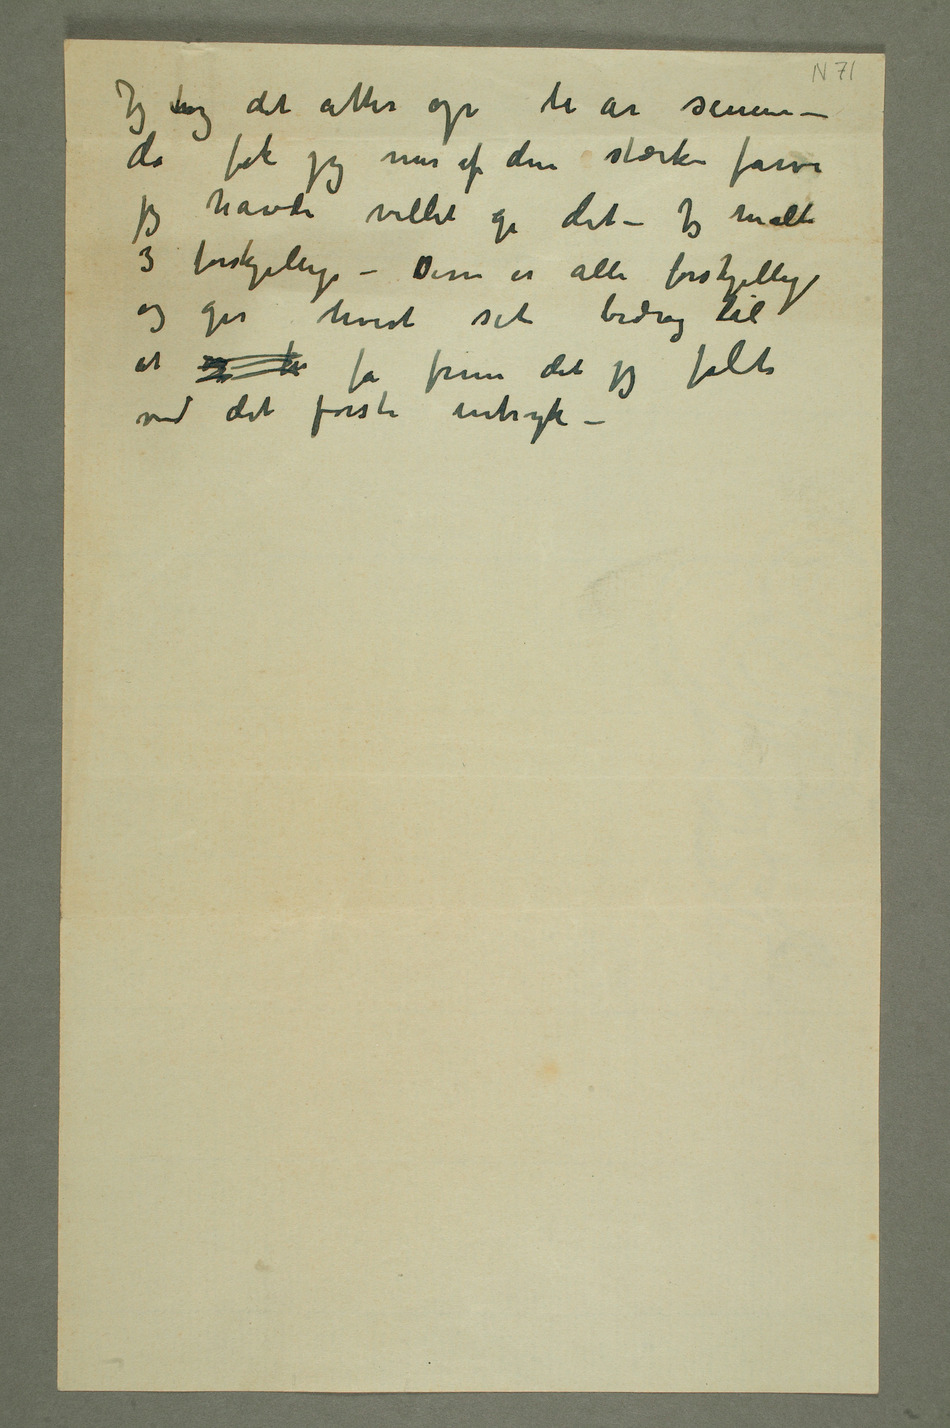 N 71
Jeg tog det atter op ti år senere –
da fik jeg mer af den stærke farve
jeg havde villet gi det – Jeg malte
3 forskjellige – Disse er alle forskjellige
og gir hvert sit bidrag til
at få frem det jeg følte
ved det første intryk –